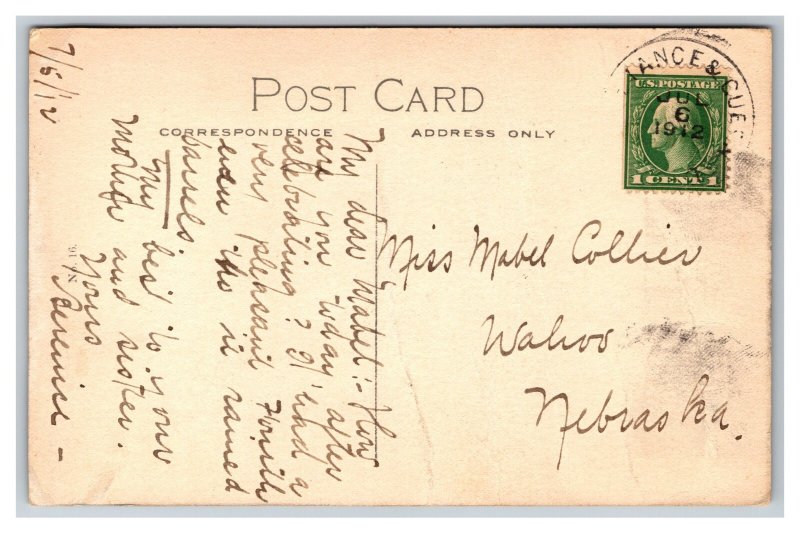 POST CARD
CORRESPONDENCE
ADDRESS ONLY
IANCE & GUER
JUL
6
1912
U.S. POSTAGE
1 CENT 1
7/5/12
My dear Mabel:- How
are you today after
celebrating? I had a
very pleasant Fourth
even tho it rained
barrels.
My best to your
mother and sister.
Yours
Berenice -
Miss Mabel Collier
Wahoo
Nebraska.